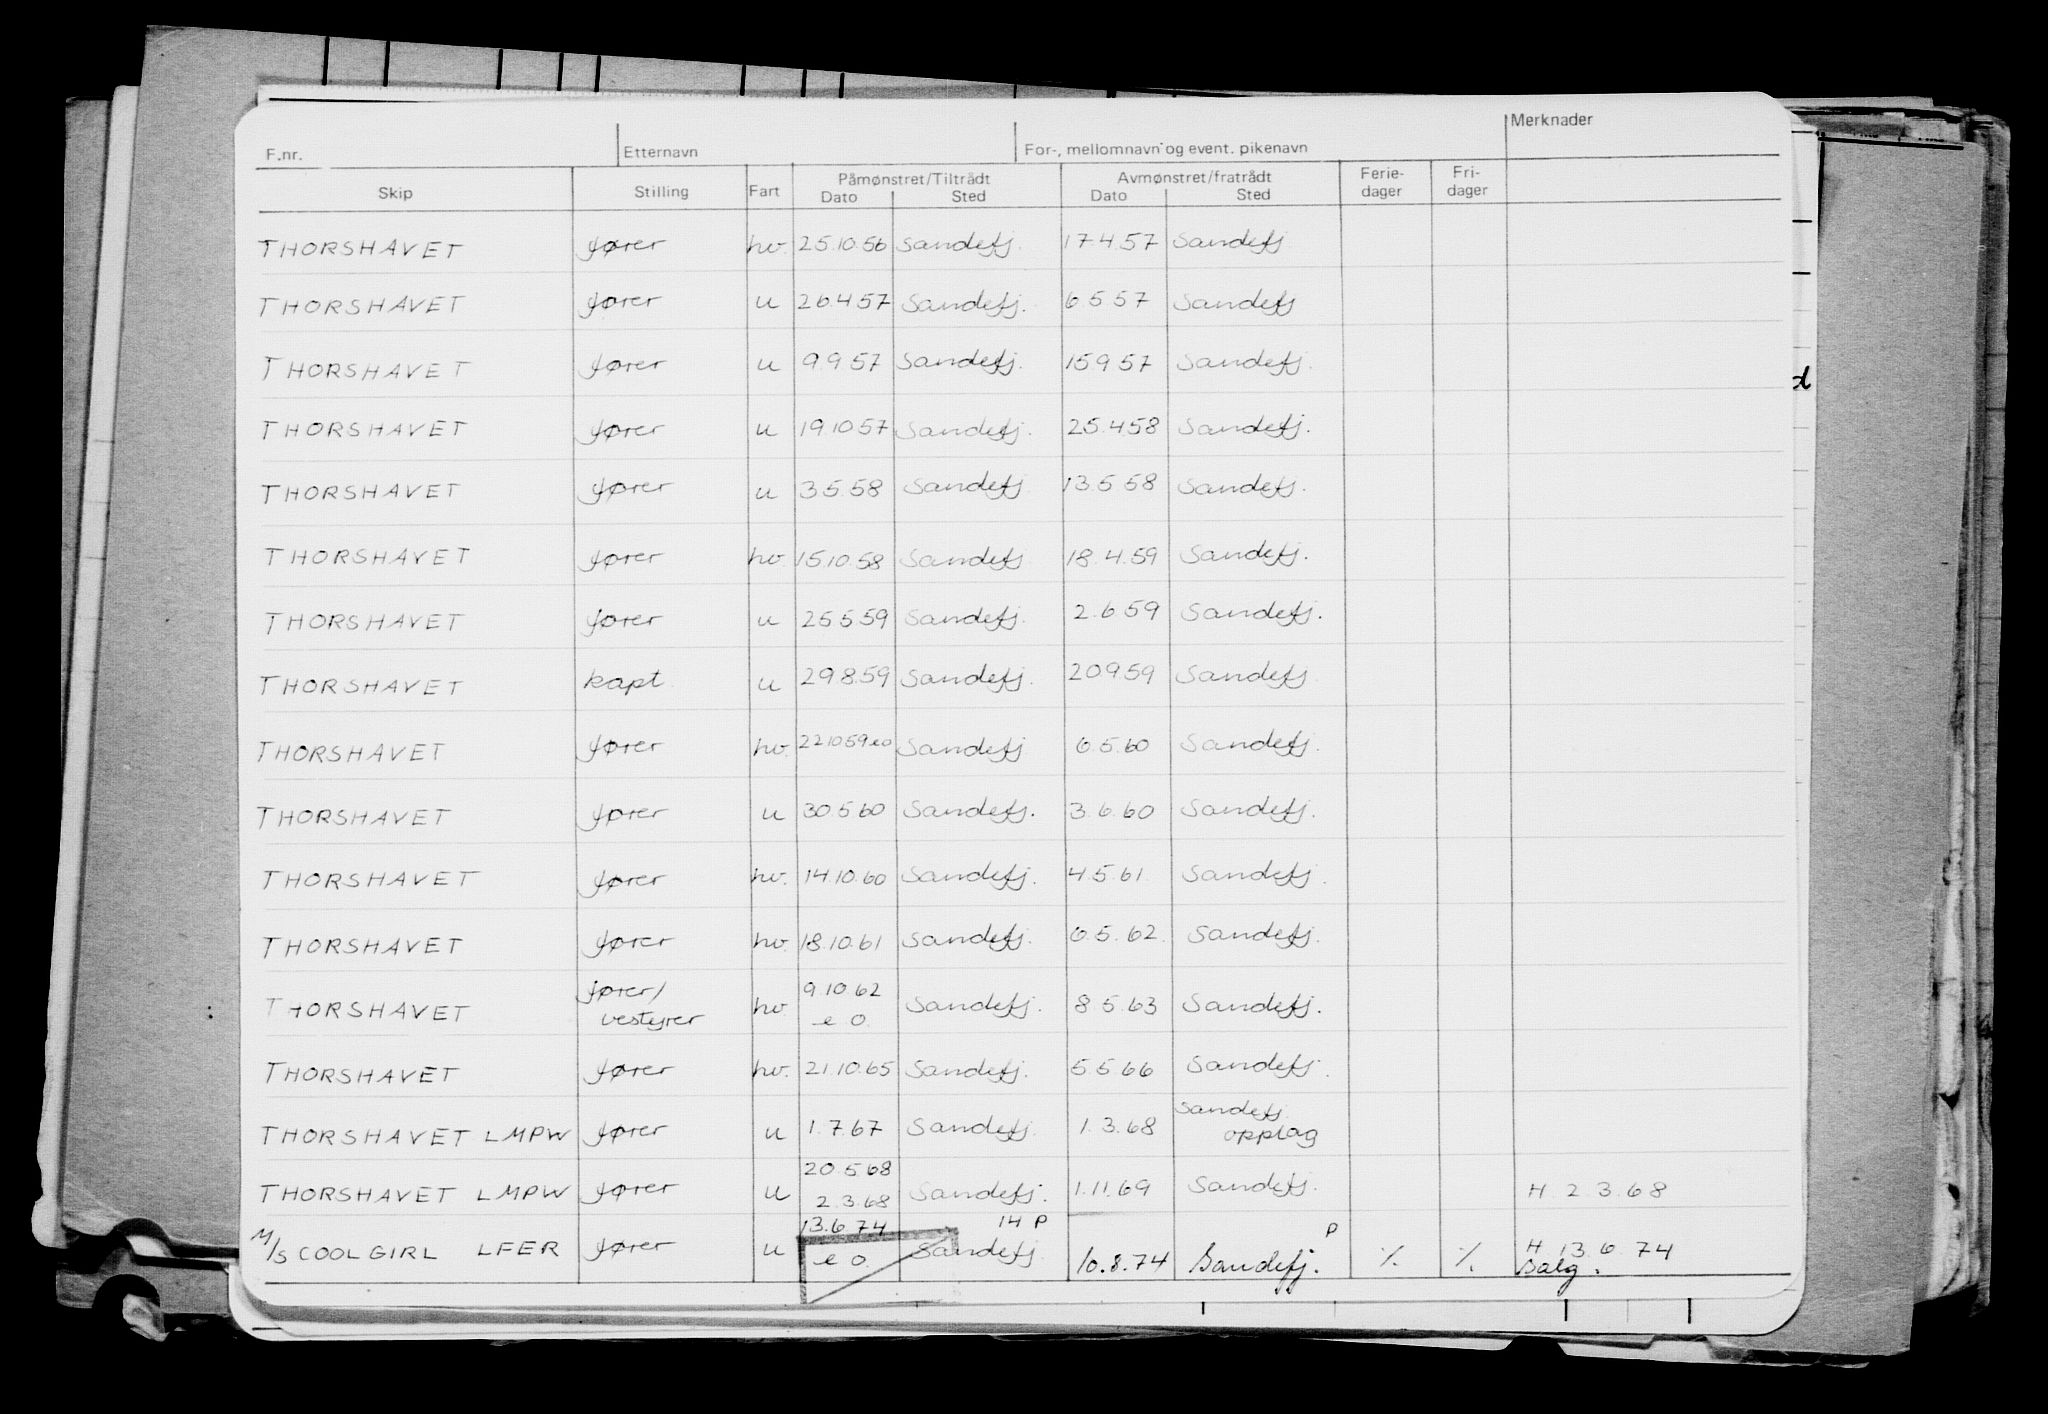 F.nr. Etternavn For-, mellomnavn og event. pikenavn Merknader
Skip Stilling Fart Påmønstret/Tiltrådt Dato Sted Avmønstret/fratrådt Dato Sted Ferie-dager Fri-dager
THORSHAVET fører hv. 25.10.56 Sandefj. 17.4.57 Sandefj
THORSHAVET fører u 26.4 57 Sandefj. 6.5.57 Sandefj
THORSHAVET fører u 9.9 57 Sandefj. 15.9 57 Sandefj.
THORSHAVET fører u 19.10 57 Sandefj. 25.4.58 Sandefj.
THORSHAVET fører u 3.5.58 Sandefj 13.5 58 Sandefj.
THORSHAVET fører hv. 15.10.58 Sandefj 18.4.59 Sandefj.
THORSHAVET fører u 25.5.59 Sandefj. 2.6 59 Sandefj.
THORSHAVET kapt. u 29.8.59 Sandefj. 20 9 59 Sandefj.
THORSHAVET fører hv. 22 10 59 eo Sandefj 6.5.60 Sandefj.
THORSHAVET fører u 30.5.60 Sandefj. 3.6.60 Sandefj.
THORSHAVET fører hv. 14.10.60 Sandefj. 4.5.61 Sandefj.
THORSHAVET fører hv. 18.10.61 Sandefj. 6.5.62 Sandefj.
THORSHAVET fører/ vestyrer hv. 9.10.62 e o. Sandefj. 8.5.63 Sandefj.
THORSHAVET fører hv. 21.10.65 Sandefj. 5.5 66 Sandefj.
THORSHAVET LMPW fører u 1.7.67 Sandefj. 1.3.68 Sandefj. opplag
THORSHAVET LMPW fører u 20.5.68 2.3.68 Sandefj. 1.11.69 Sandefj. H 2.3.68
M/S COOLGIRL LFER fører u 13.6.74 e o. 14 P Sandefj. 10.8.74 P Sandefj. ⁒ ⁒ H 13.6.74 Salg.